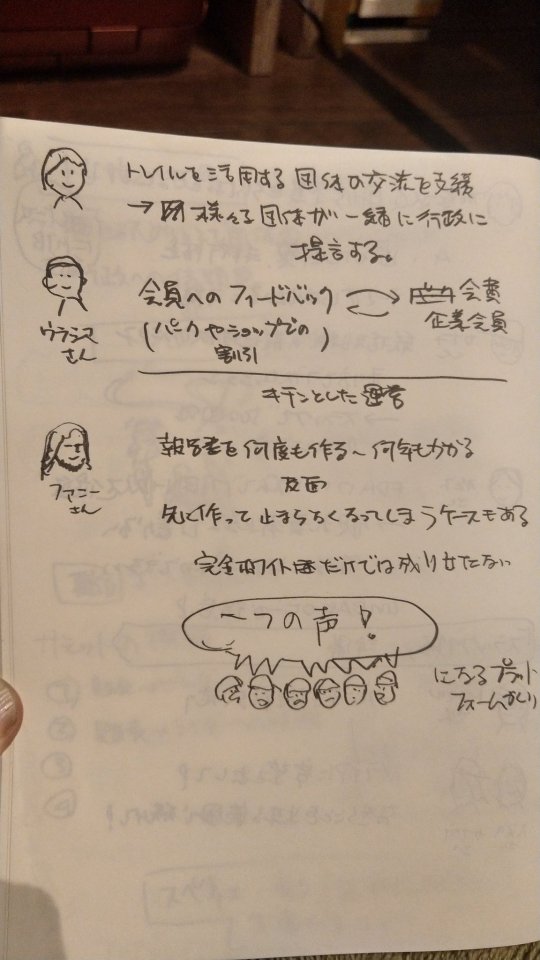 トレイルを活用する団体の交流を支援
→ 様々な団体が一緒に行政に
提言する。
会員へのフィードバック 会費
企業会員
(パークやショップでの
割引)
ウラシマ
さん
キチンとした運営
報告書を何度も作る~何年もかかる
反面
先に作って止まらなくなってしまうケースもある
ファニー
さん
完全ホワイトだけでは成り立たない
一つの声!
になるプラット
フォームづくり